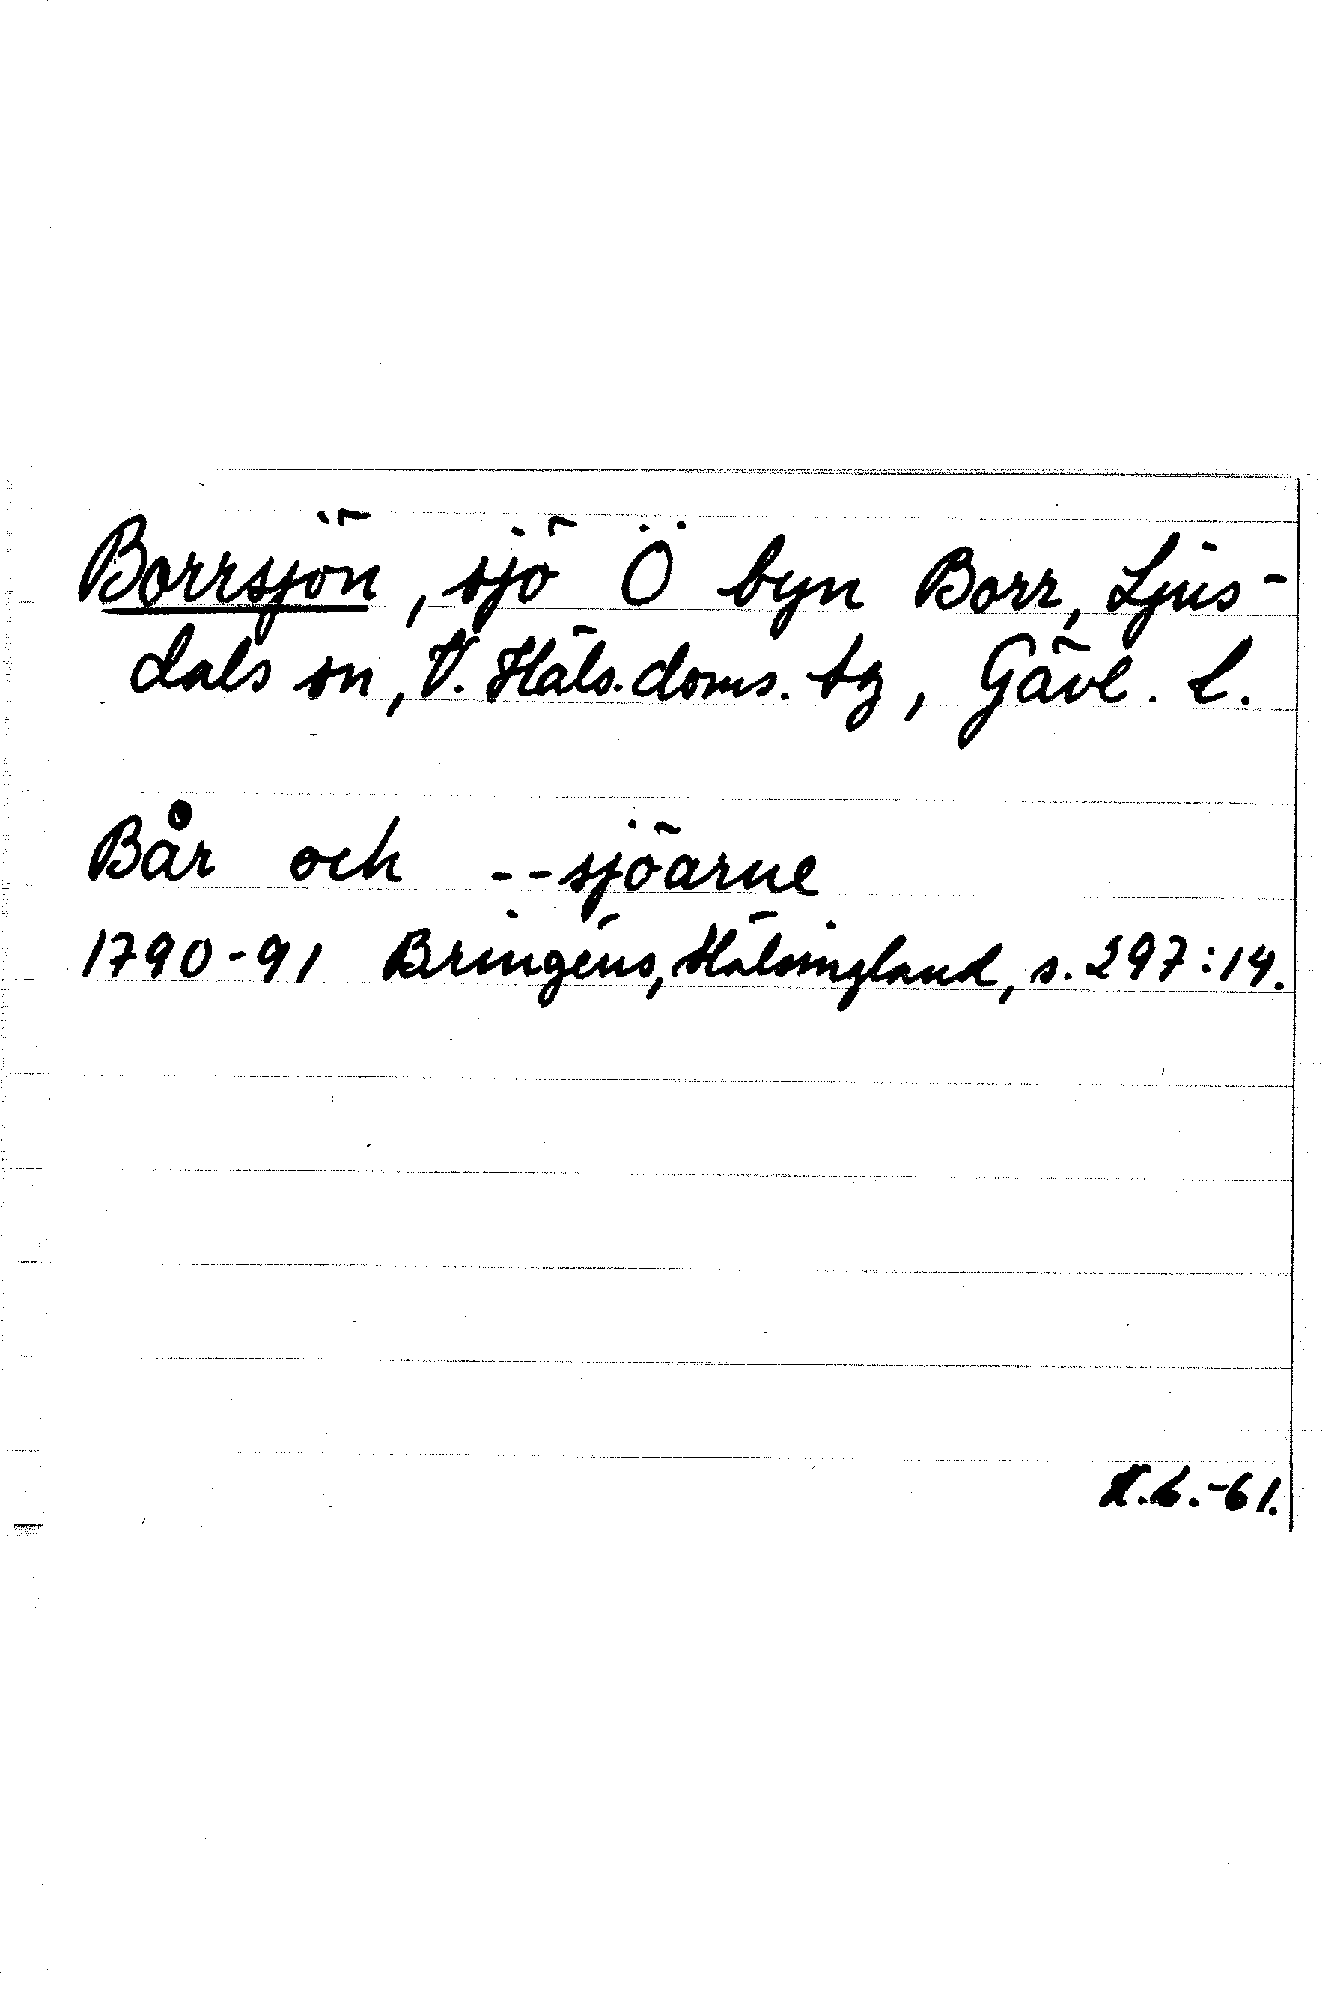 Borrsjön, sjö Ö byn Borr, Ljus-
dals sn, V. Häls. doms. tg, Gävl. L.
Bår och --sjöarne
1790-91 Bringéus, Hälsingland, s. 297:14.
-61.